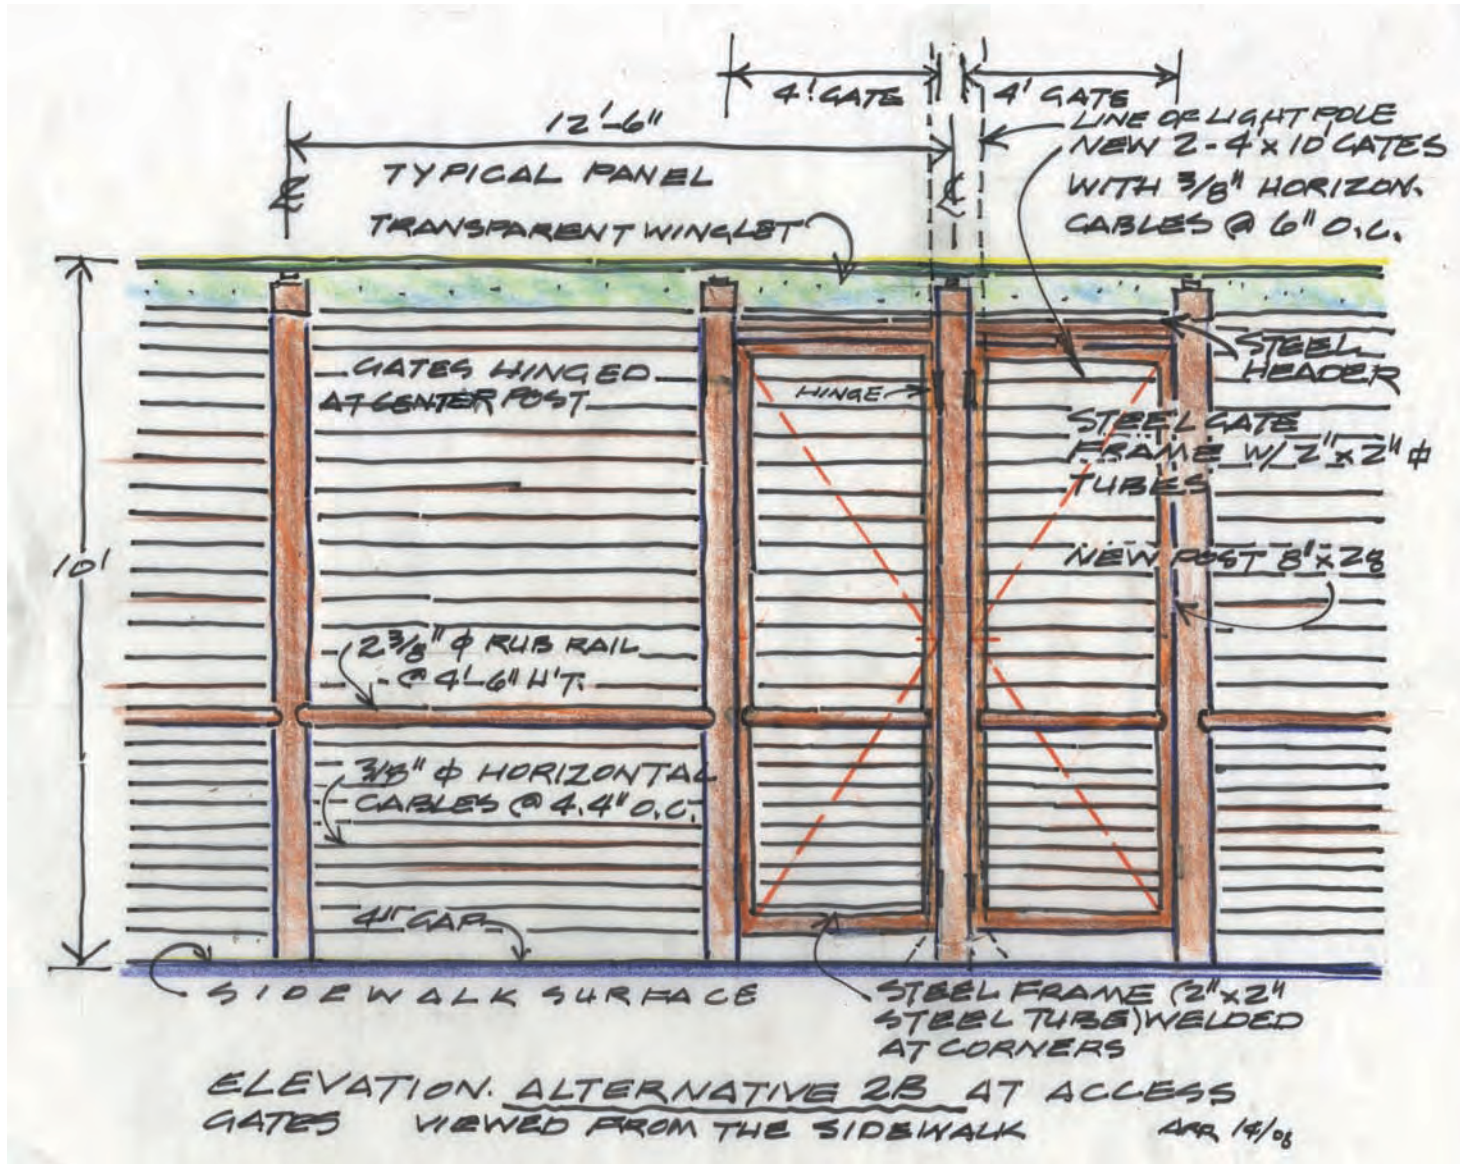 4' GATE
4' GATE
12'-6"
TYPICAL PANEL
℄
℄
TRANSPARENT WINGLET
LINE OF LIGHT POLE
NEW 2-4'x10' GATES
WITH 3/8" HORIZON.
CABLES @ 6" O.C.
GATES HINGED
AT CENTER POST
HINGE
STEEL
HEADER
STEEL GATE
FRAME W/ 2"x2" ϕ
TUBES
10'
NEW POST 8"x28
2 3/8" ϕ RUB RAIL
@ 4'-6" H'T.
3/8" ϕ HORIZONTAL
CABLES @ 4.4" O.C.
4" GAP
SIDEWALK SURFACE
STEEL FRAME (2"x2"
STEEL TUBE) WELDED
AT CORNERS
ELEVATION. ALTERNATIVE 2B AT ACCESS
GATES VIEWED FROM THE SIDEWALK
APR 14/08